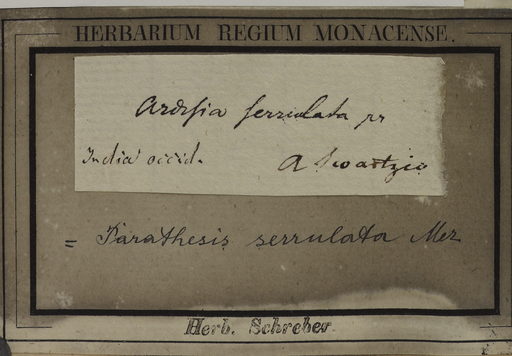 HERBARIUM REGIUM MONACENSE.
Ardisia serrulata
India occid.
a Swartzio
= Parathesis serrulata Mez
Herb. Schreber